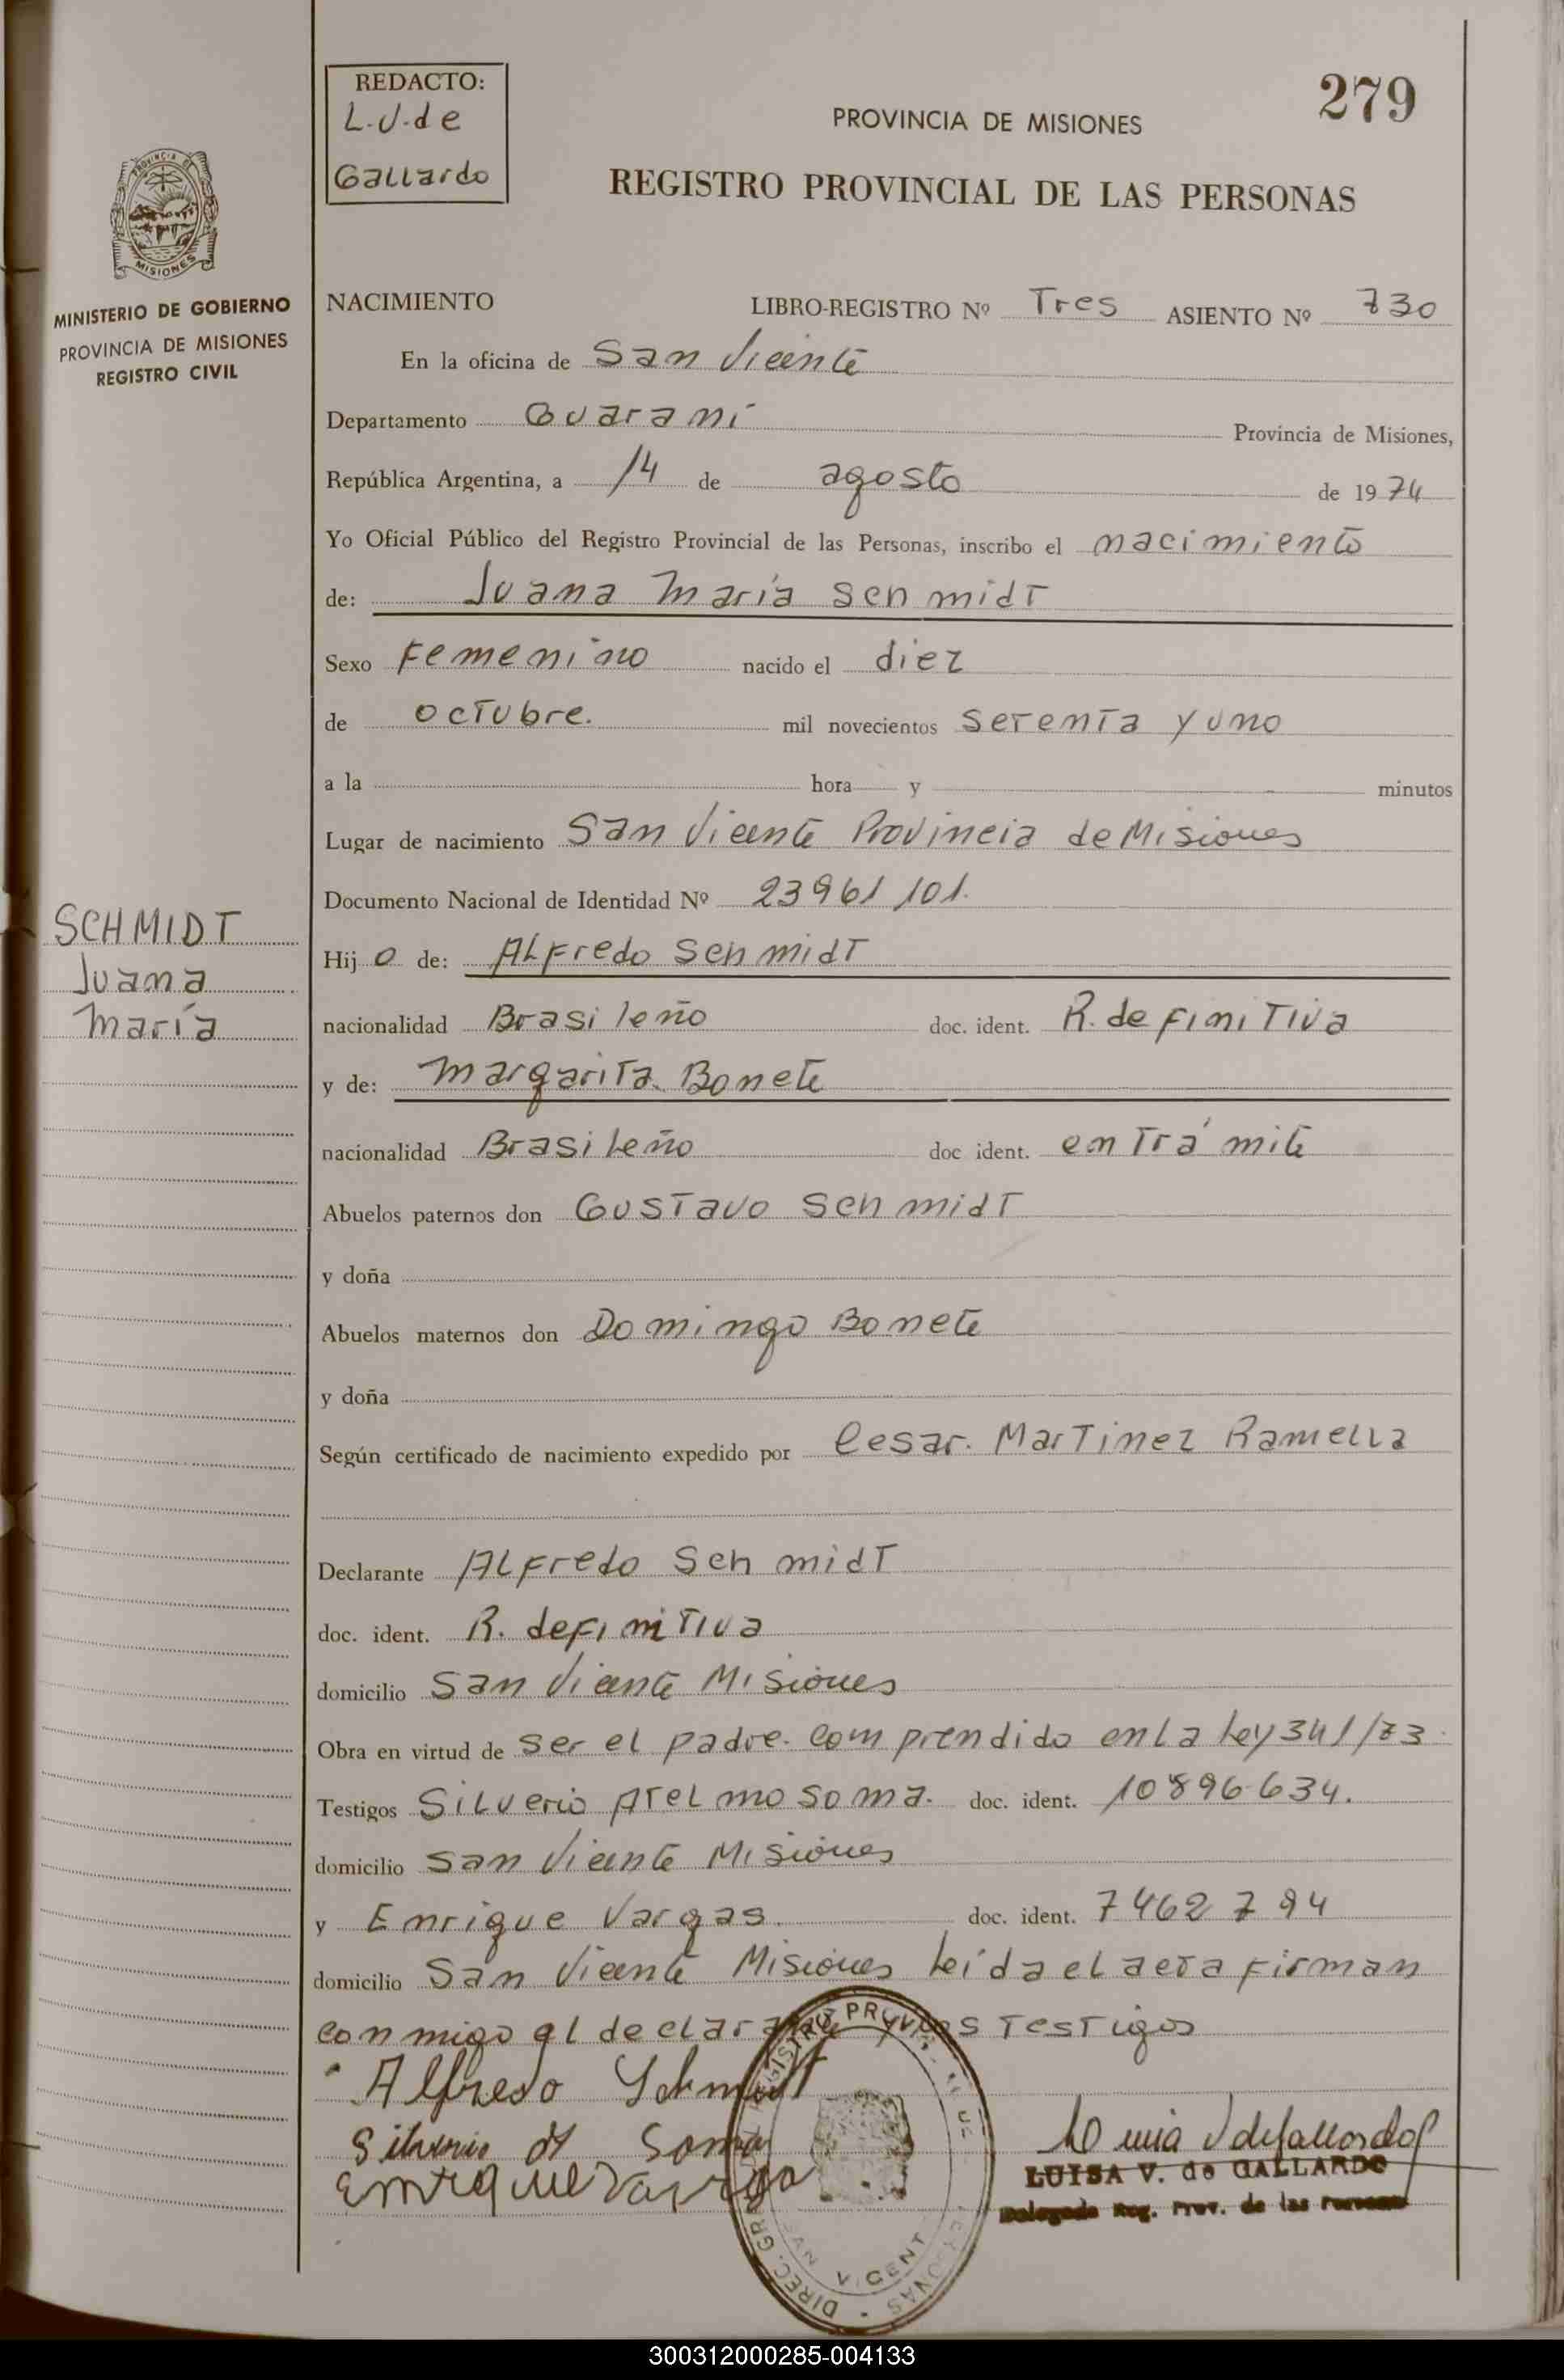 REDACTO:
L.V.de
Gallardo
279
PROVINCIA DE MISIONES
REGISTRO PROVINCIAL DE LAS PERSONAS
PROVINCIA DE
MISIONES
MINISTERIO DE GOBIERNO
PROVINCIA DE MISIONES
REGISTRO CIVIL
NACIMIENTO LIBRO-REGISTRO Nº Tres ASIENTO Nº 730
En la oficina de San Vicente
Departamento Guaraní Provincia de Misiones,
República Argentina, a 14 de agosto de 1974
Yo Oficial Público del Registro Provincial de las Personas, inscribo el nacimiento
de: Juana María Schmidt
Sexo Femenino nacido el diez
de octubre. mil novecientos setenta y uno
a la hora y minutos
Lugar de nacimiento San Vicente Provincia de Misiones
Documento Nacional de Identidad Nº 23961101.
SCHMIDT
Juana
María
Hijo de: Alfredo Schmidt
nacionalidad Brasileño doc. ident. R. definitiva
y de: Margarita Bonete
nacionalidad Brasileño doc ident. en trámite
Abuelos paternos don Gustavo Schmidt
y doña
Abuelos maternos don Domingo Bonete
y doña
Según certificado de nacimiento expedido por Cesar. Martinez Ramella
Declarante Alfredo Schmidt
doc. ident. R. definitiva
domicilio San Vicente Misiones
Obra en virtud de ser el padre. comprendido en la Ley 341/73
Testigos Silverio Atelmo Soma. doc. ident. 10896634.
domicilio San Vicente Misiones
y Enrique Vargas. doc. ident. 7462794
domicilio San Vicente Misiones leída el acta firman
conmigo el declarante y los testigos
Alfredo Schmidt
Silverio A Soma
Enrique Vargas
Luisa V de Gallardo
LUISA V. de GALLARDO
Delegada Reg. Prov. de las Personas
300312000285-004133